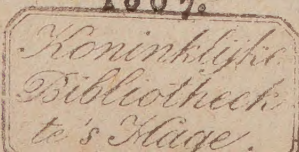 1807.
Koninklijke
Bibliotheek
te's Hage.